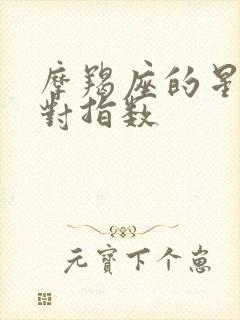 摩羯座的星
對指数
元寶下个崽